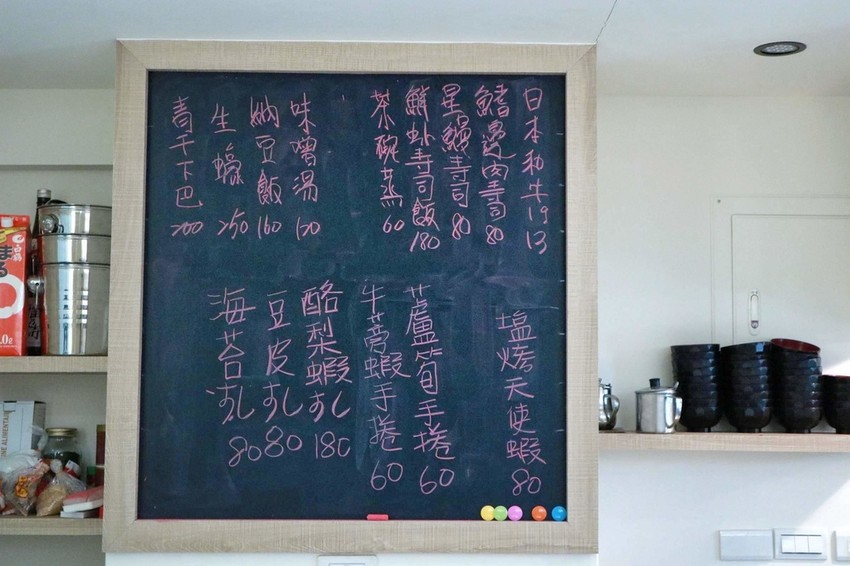 日本和牛1913
鰭邊肉壽司80
星鰻壽司80
鮮蚵壽司飯180
茶碗蒸60
味噌湯120
納豆飯160
生蠔250
青干下巴200
塩烤天使蝦80
蘆筍手捲60
牛蒡蝦手捲60
酪梨蝦すし180
豆皮すし80
海苔すし80